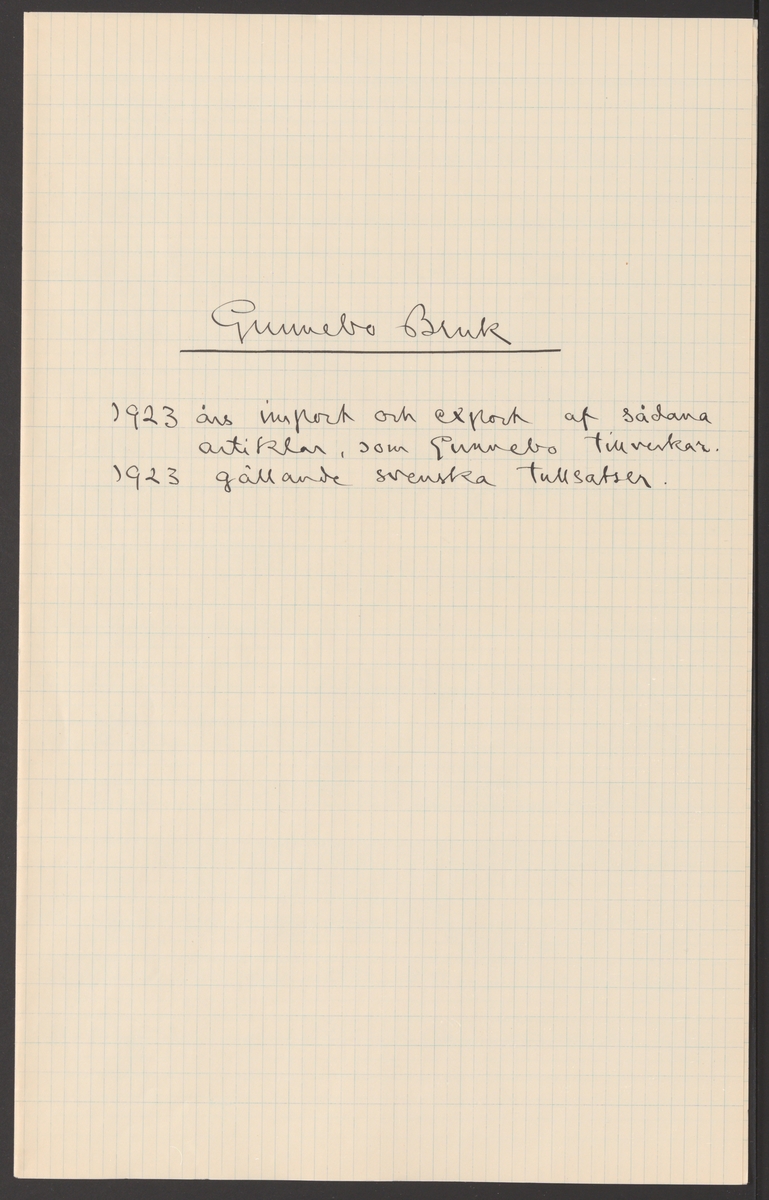 Gunnebo Bruk
1923 års import och export af sådana
artiklar, som Gunnebo tillverkar.
1923 gällande svenska tullsatser.